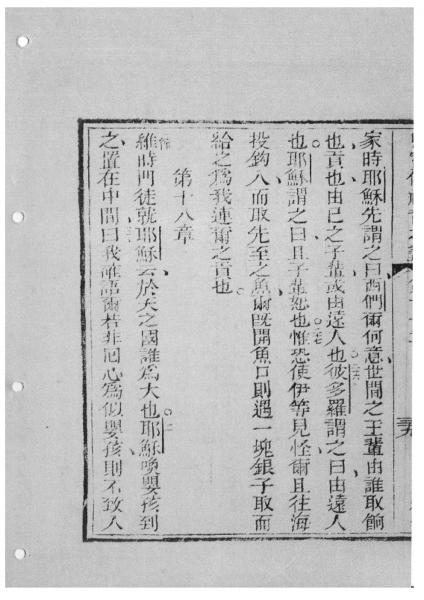 家時耶穌先謂之曰西們爾何意世間之王輩由誰取餉
也貢也由己之子輩或由遠人也彼多羅謂之曰由遠人
也耶穌謂之曰且子輩恕也惟恐使伊等見怪爾且往海
投鈎入而取先至之魚爾既開魚口則遇一塊銀子取而
給之為我連爾之貢也
第十八章
維時門徒就耶穌云於天之國誰為大也耶穌喚嬰孩到
之置在中間曰我誰語爾若非囘心為似嬰孩則不致入